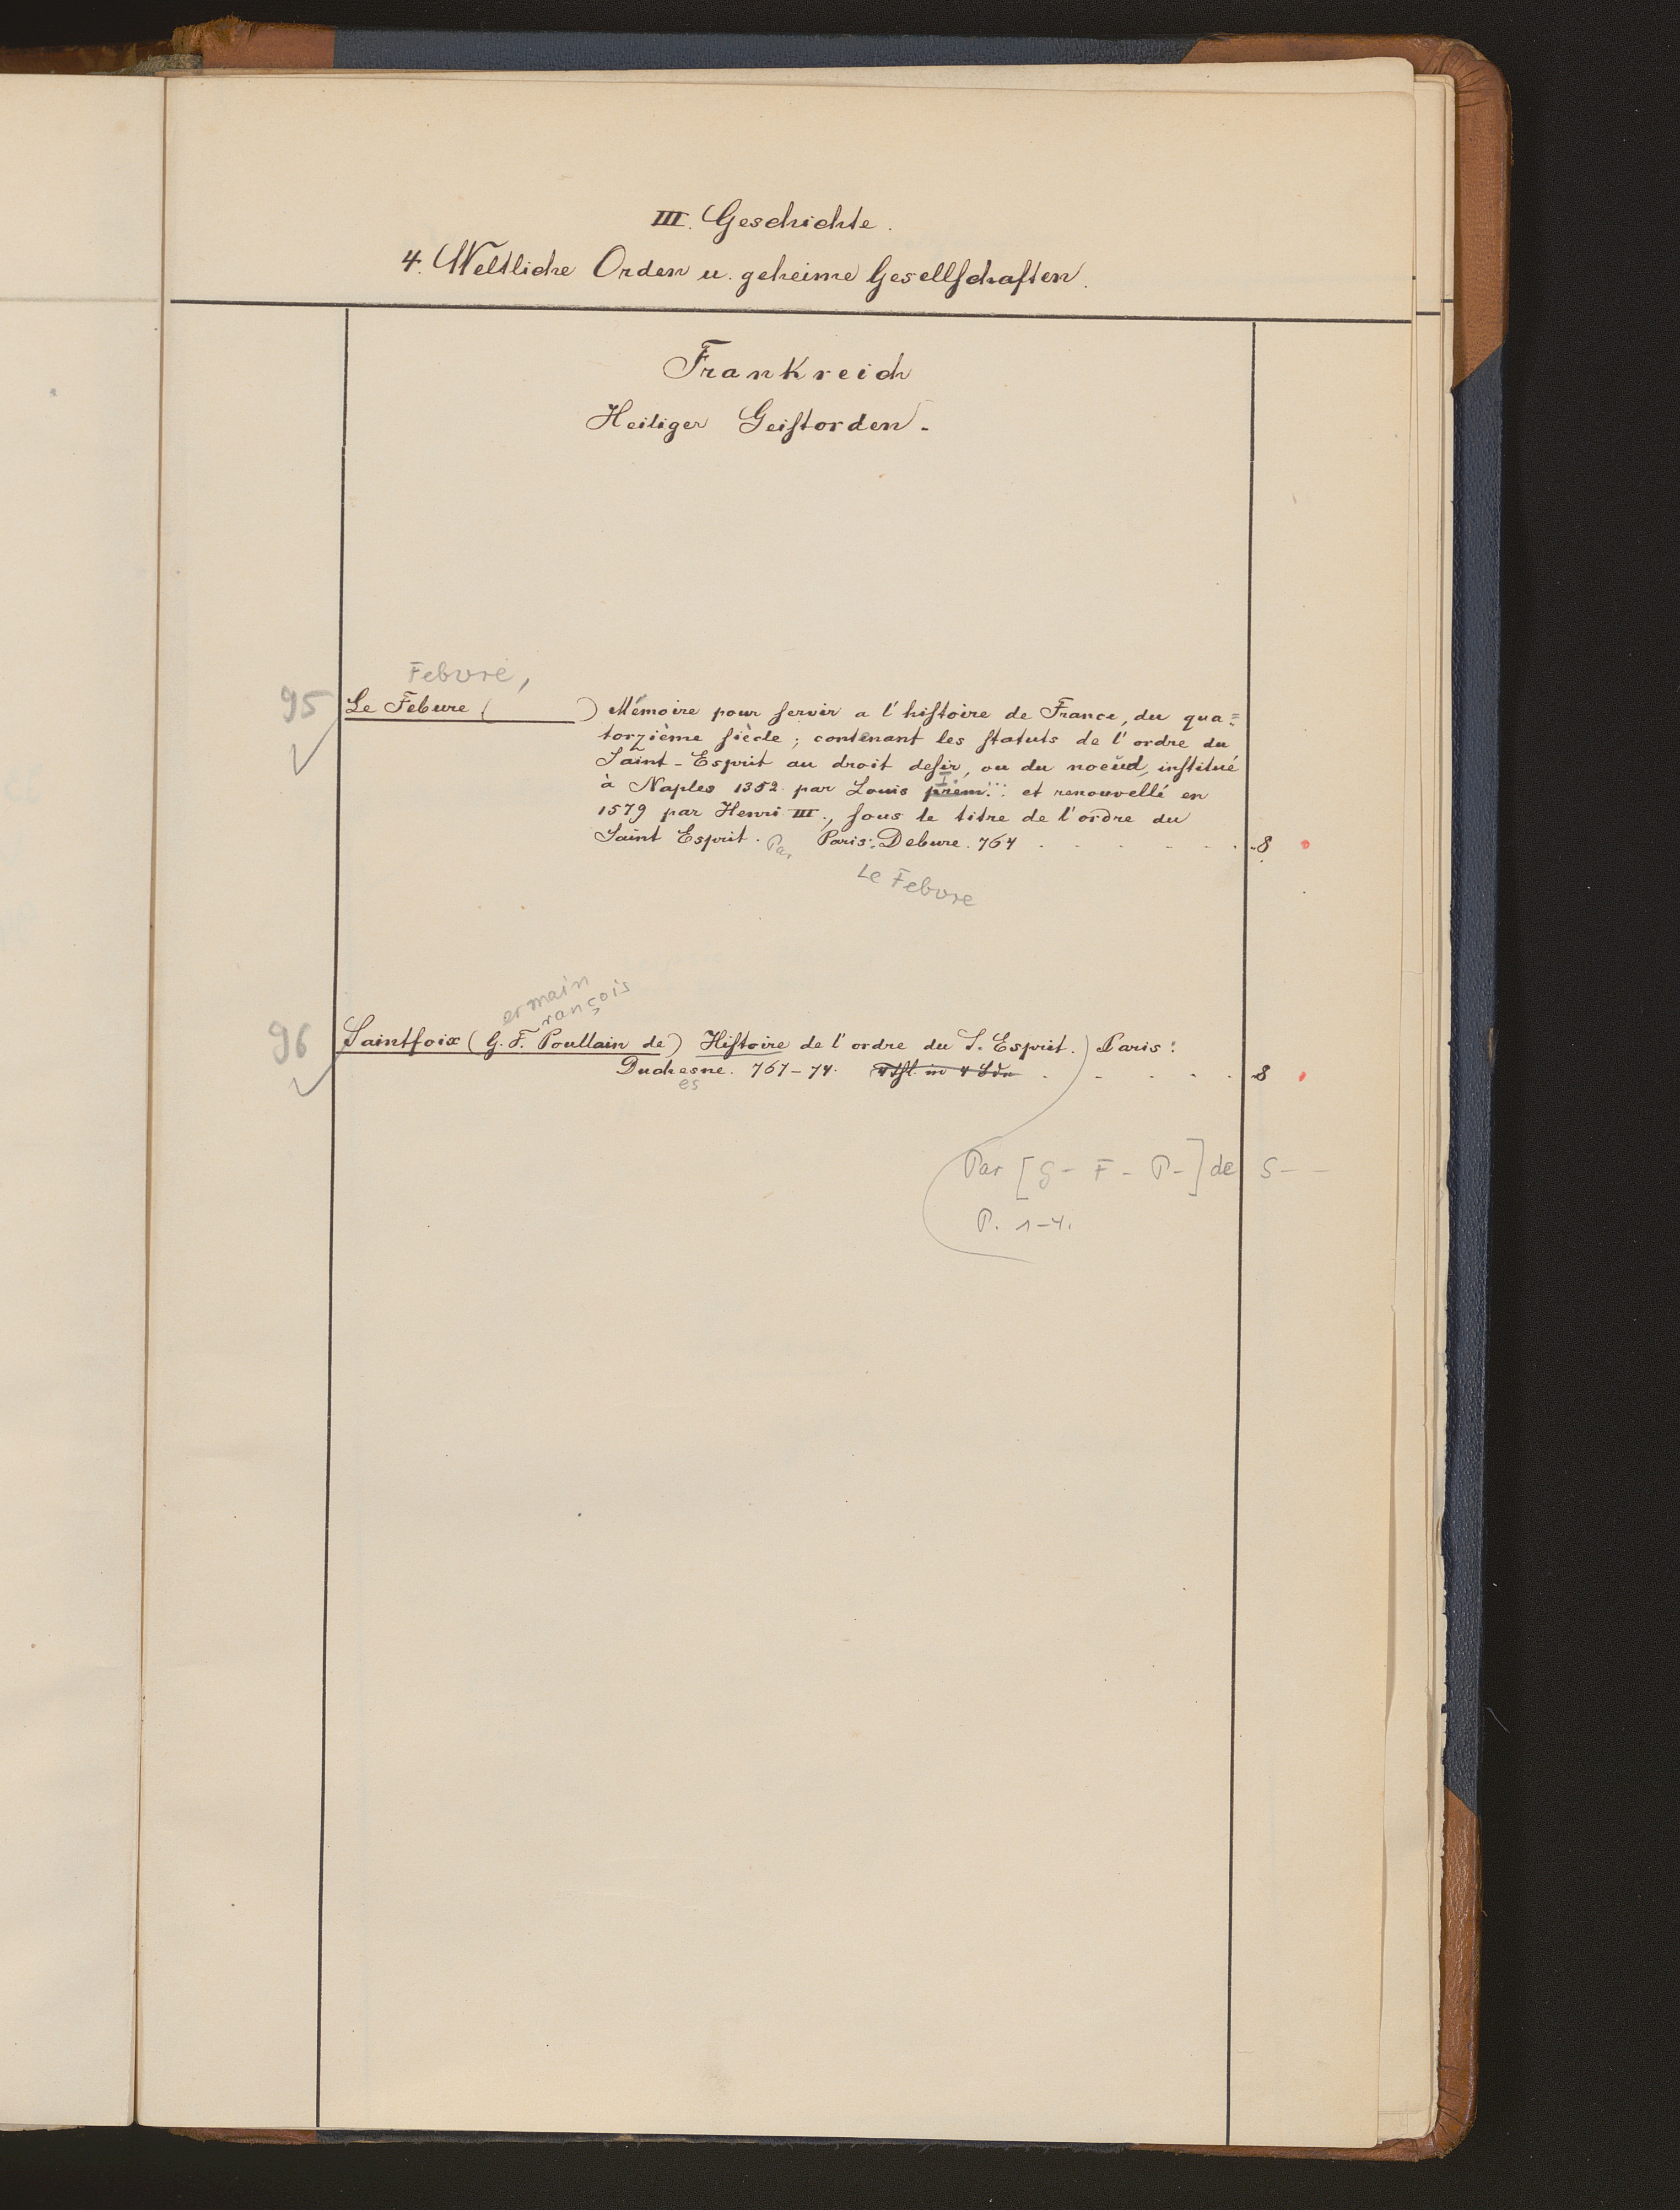 III. Geschichte.
4. Weltliche Orden u. geheime Gesellschaften.
Frankreich
Heiliger Geistorden.
Febvre,
95 Le Febure ( ) Mémoire pour servir a l'histoire de France, du qua=
torzième siècle; contenant les statuts de l'ordre du
Saint-Esprit au droit desir, ou du noeud, institué
à Naples 1352 par Louis prem. I. et renouvellé en
1579 par Henri III., sous le titre de l'ordre du
Saint Esprit. Par Paris: Debure. 764 . . . . . . 8
Le Febvre
ermain
rançois
96 Saintfoix (G. F. Poullain de) Histoire de l'ordre du S. Esprit.) Paris:
Duchesne. 767-74. 4 Thl. in 4 Bdn . . . . . 8
es
Par [G- F- P-] de S--
P. 1-4.